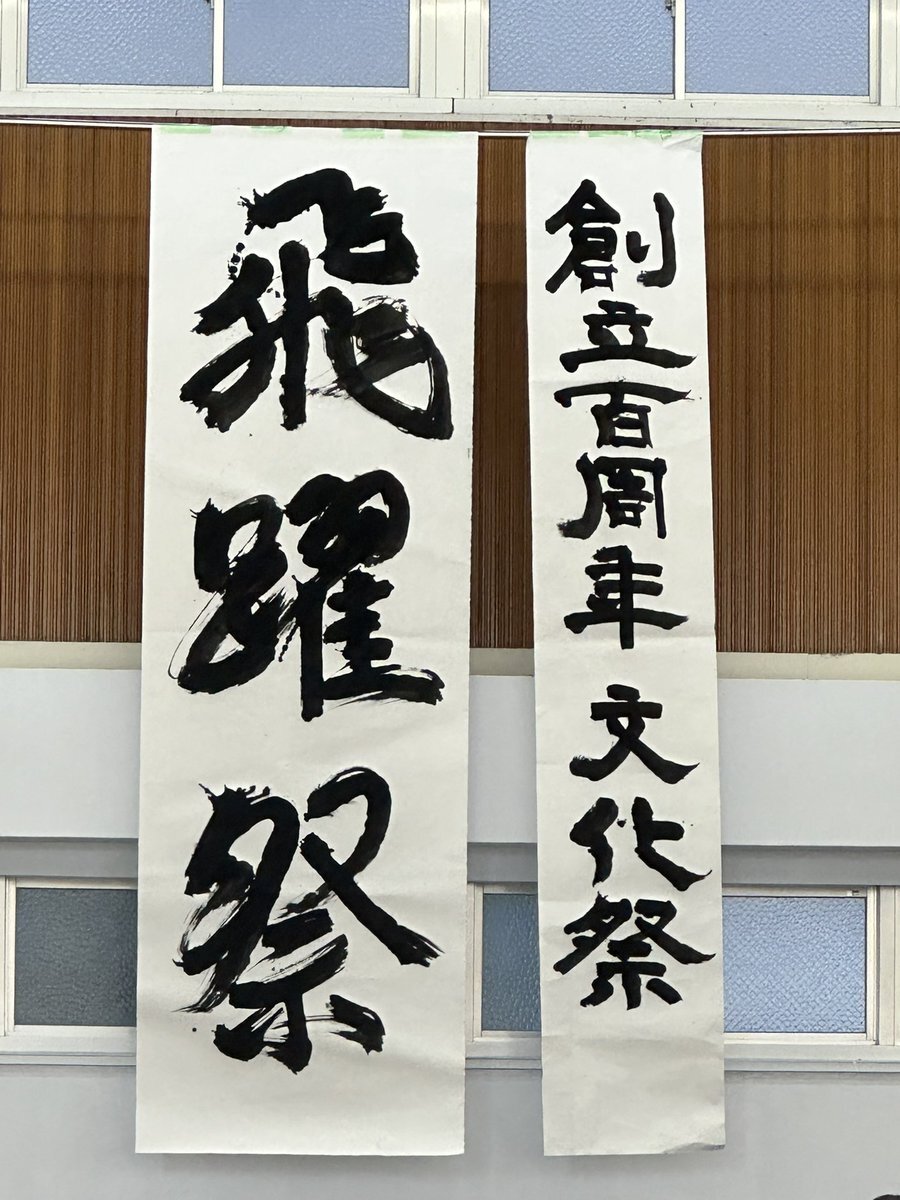 創立百周年 文化祭
飛躍祭